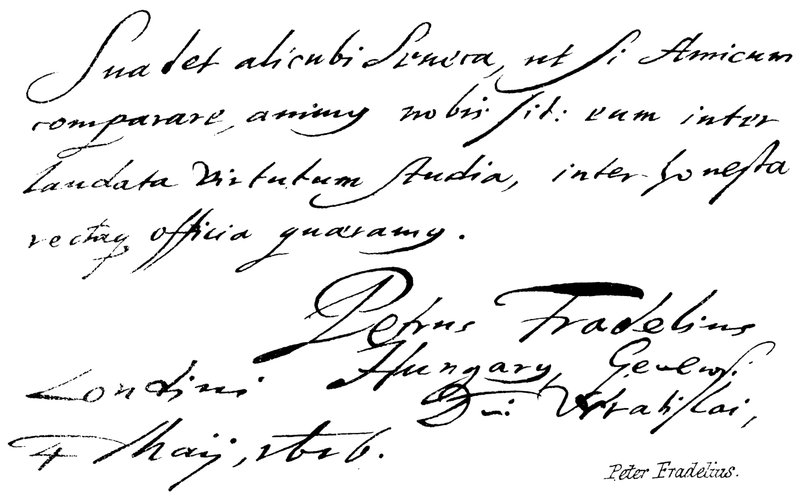 Suadet alicubi Seneca, ut si Amicum
comparare, animus nobis sit: eum inter
laudata virtutum studia, inter honesta
rectaq officia quæramus.
Petrus Fradelius
Hungarus,
Londini
Dni Vratislai,
4 Maij, 1616.
Peter Fradelius.